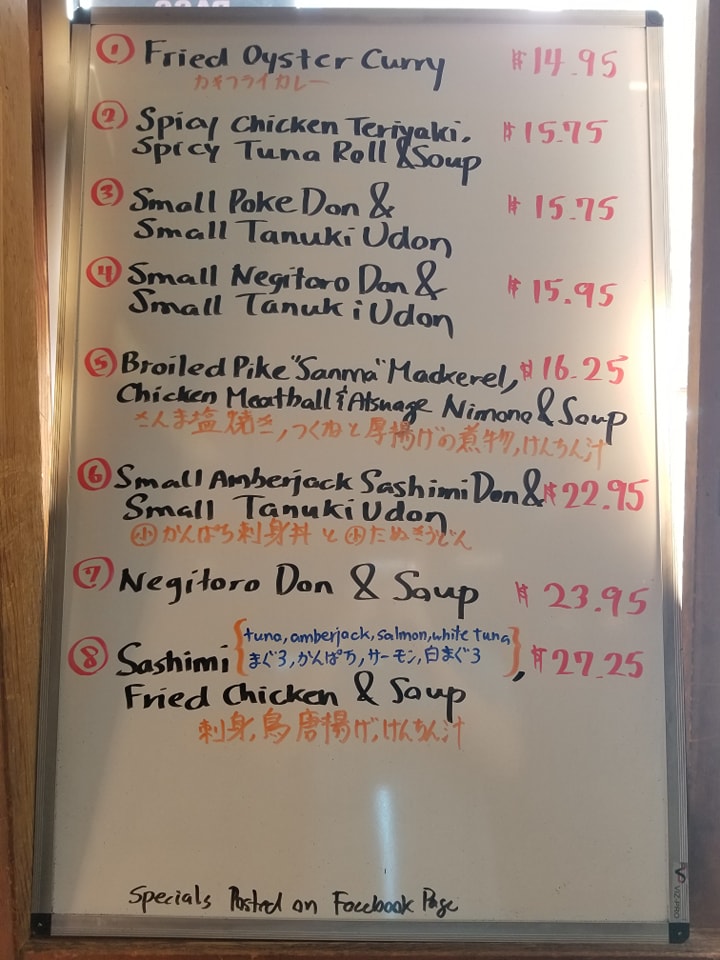 ① Fried Oyster Curry $14.95
カキフライカレー
② Spicy Chicken Teriyaki, $15.75
Spicy Tuna Roll & Soup
③ Small Poke Don & $15.75
Small Tanuki Udon
④ Small Negitoro Don & $15.95
Small Tanuki Udon
⑤ Broiled Pike "Sanma" Mackerel, $16.25
Chicken Meatball & Atsuage Nimono & Soup
さんま塩焼き, つくねと厚揚げの煮物, けんちん汁
⑥ Small Amberjack Sashimi Don & $22.95
Small Tanuki Udon
㊙小かんぱち刺身丼と小たぬきうどん
⑦ Negitoro Don & Soup $23.95
⑧ Sashimi {tuna, amberjack, salmon, white tuna
まぐろ, かんぱち, サーモン, 白まぐろ}, $27.25
Fried Chicken & Soup
刺身, 鳥唐揚げ, けんちん汁
Specials Posted on Facebook Page
VIZ-PRO